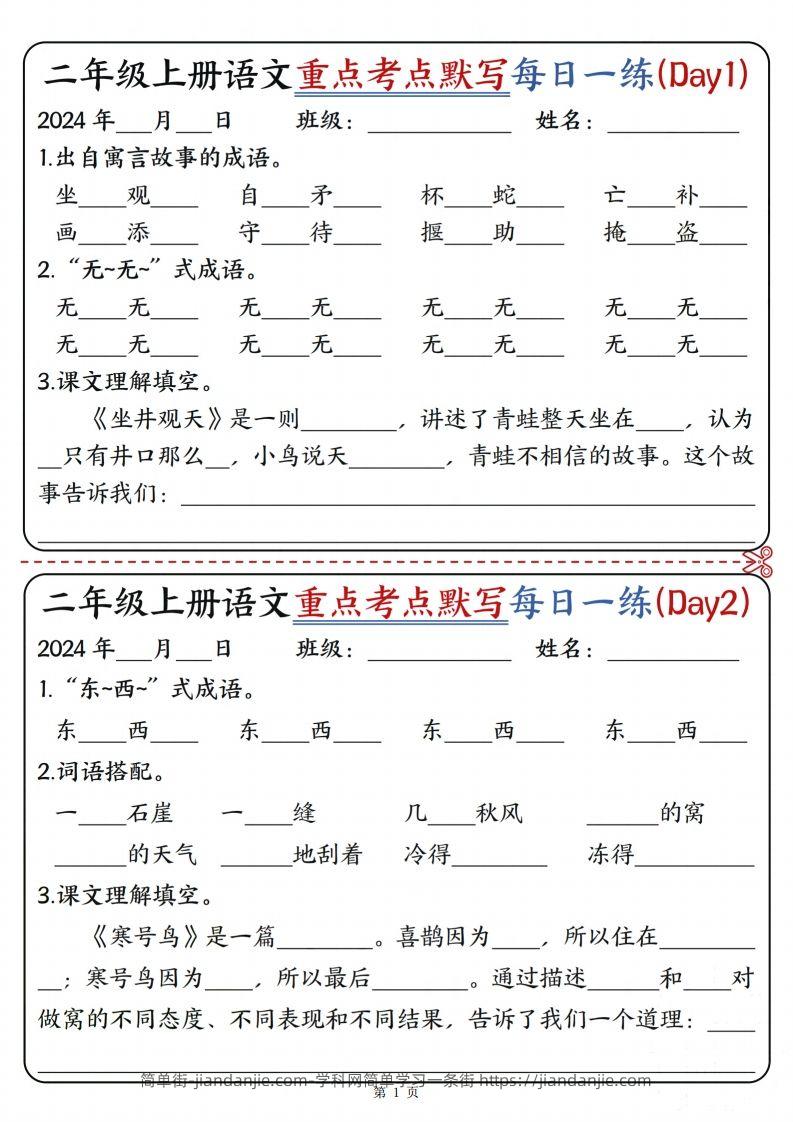 二年级上册语文重点考点默写每日一练(Day1)
2024 年___月___日 班级：____________ 姓名：___________
1.出自寓言故事的成语。
坐____观____ 自____矛____ 杯____蛇____ 亡____补____
画____添____ 守____待____ 揠____助____ 掩____盗____
2.“无~无~”式成语。
无____无____ 无____无____ 无____无____ 无____无____
无____无____ 无____无____ 无____无____ 无____无____
3.课文理解填空。
《坐井观天》是一则________，讲述了青蛙整天坐在____，认为
__只有井口那么__，小鸟说天________，青蛙不相信的故事。这个故
事告诉我们：________________________________________________
____________________________________________________________
二年级上册语文重点考点默写每日一练(Day2)
2024 年___月___日 班级：____________ 姓名：___________
1.“东~西~”式成语。
东____西____ 东____西____ 东____西____ 东____西____
2.词语搭配。
一____石崖 一____缝 几____秋风 ______的窝
______的天气 ______地刮着 冷得________ 冻得__________
3.课文理解填空。
《寒号鸟》是一篇________。喜鹊因为____，所以住在________
__；寒号鸟因为____，所以最后________。通过描述______和____对
做窝的不同态度、不同表现和不同结果，告诉了我们一个道理：____
____________________________________________________________
简单街-jiandanjie.com-学科网简单学习一条街 https://jiandanjie.com
第 1 页